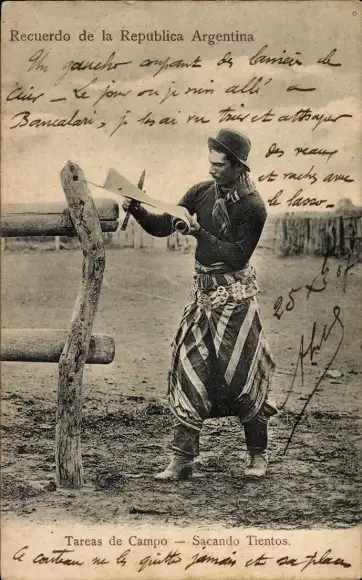 Recuerdo de la Republica Argentina
Un gaucho coupant des lanières de
cuir – Le jour où je suis allé a
Bancalari, je les ai vu trier et attraper
des veaux
et vaches avec
le lasso
25 X
Tareas de Campo — Sacando Tientos.
Le couteau ne les quitte jamais et sa place